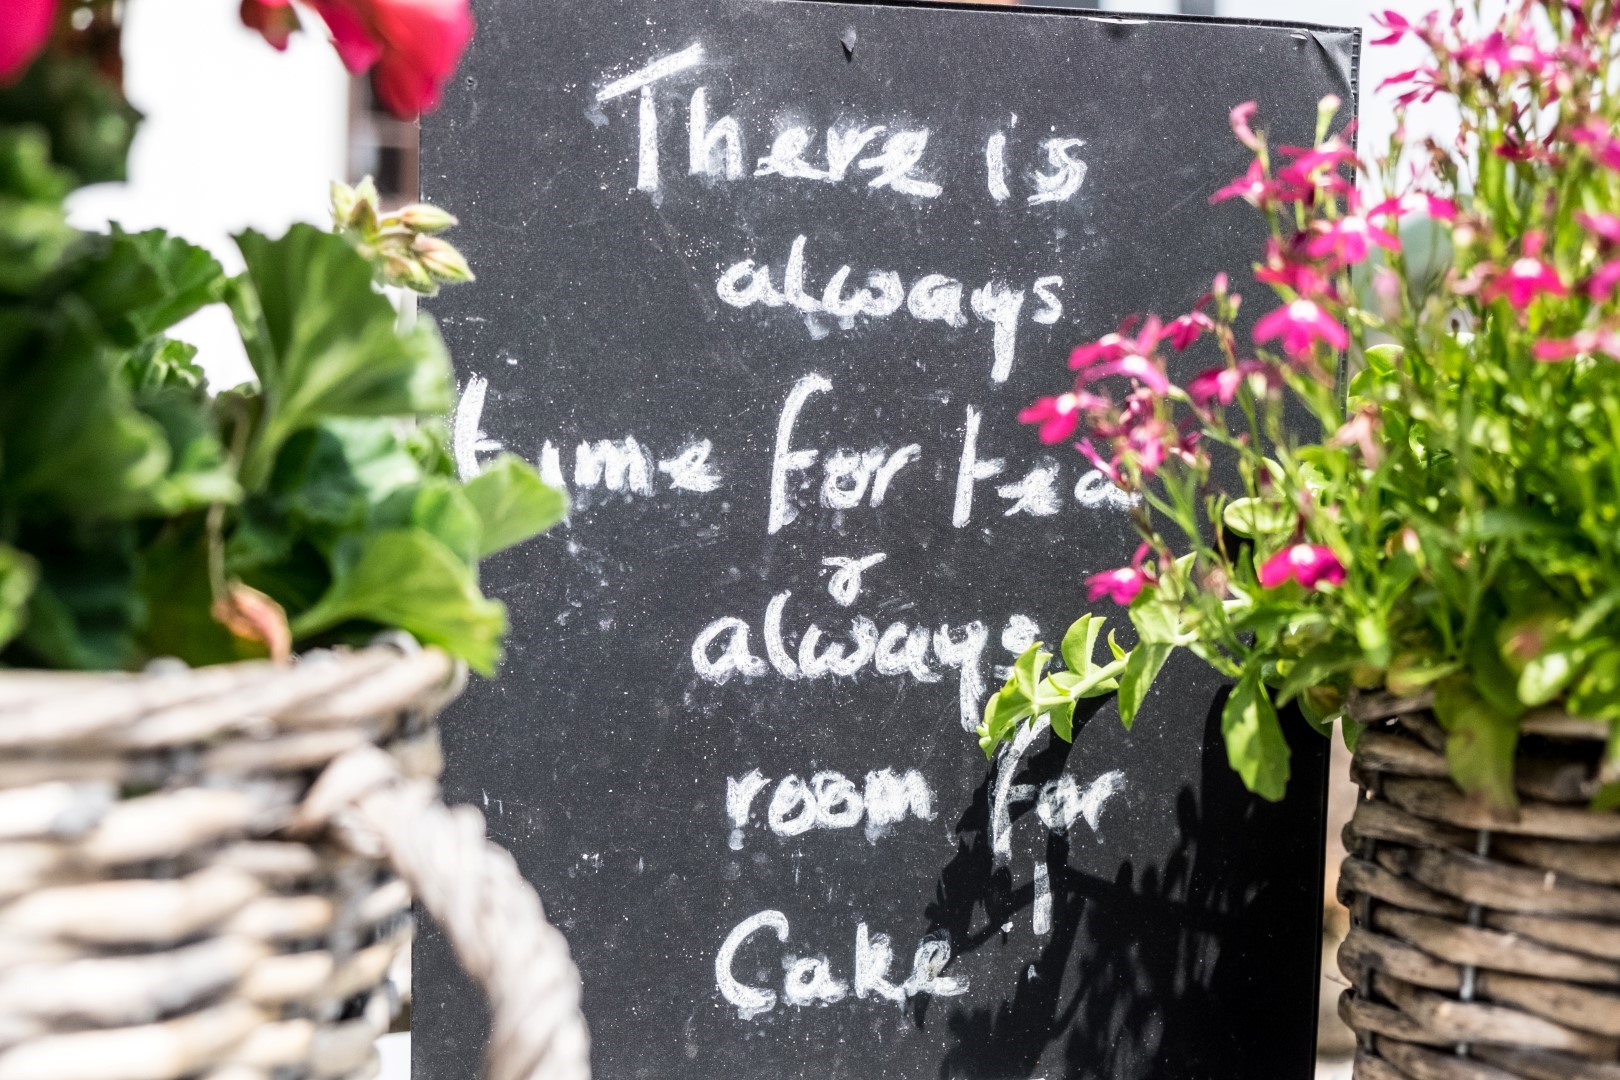 There is
always
time for tea
&
always
room for
Cake!